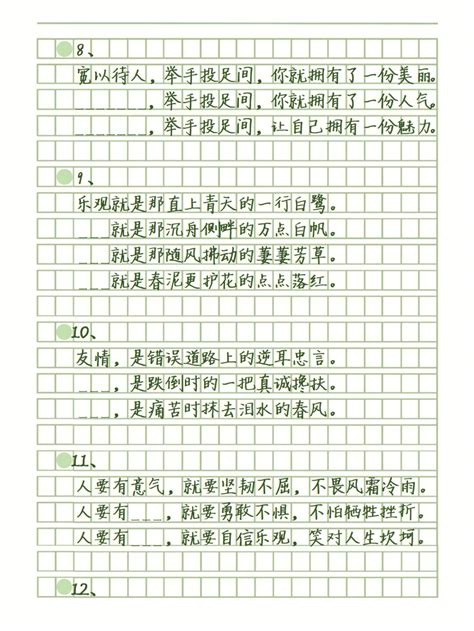 8、
宽以待人，举手投足间，你就拥有了一份美丽。
_______，举手投足间，你就拥有了一份人气。
_______，举手投足间，让自己拥有一份魅力。
9、
乐观就是那直上青天的一行白鹭。
___就是那沉舟侧畔的万点白帆。
___就是那随风拂动的萋萋芳草。
___就是春泥更护花的点点落红。
10、
友情，是错误道路上的逆耳忠言。
___，是跌倒时的一把真诚搀扶。
___，是痛苦时抹去泪水的春风。
11、
人要有意气，就要坚韧不屈，不畏风霜冷雨。
人要有___，就要勇敢不惧，不怕牺牲挫折。
人要有___，就要自信乐观，笑对人生坎坷。
12、